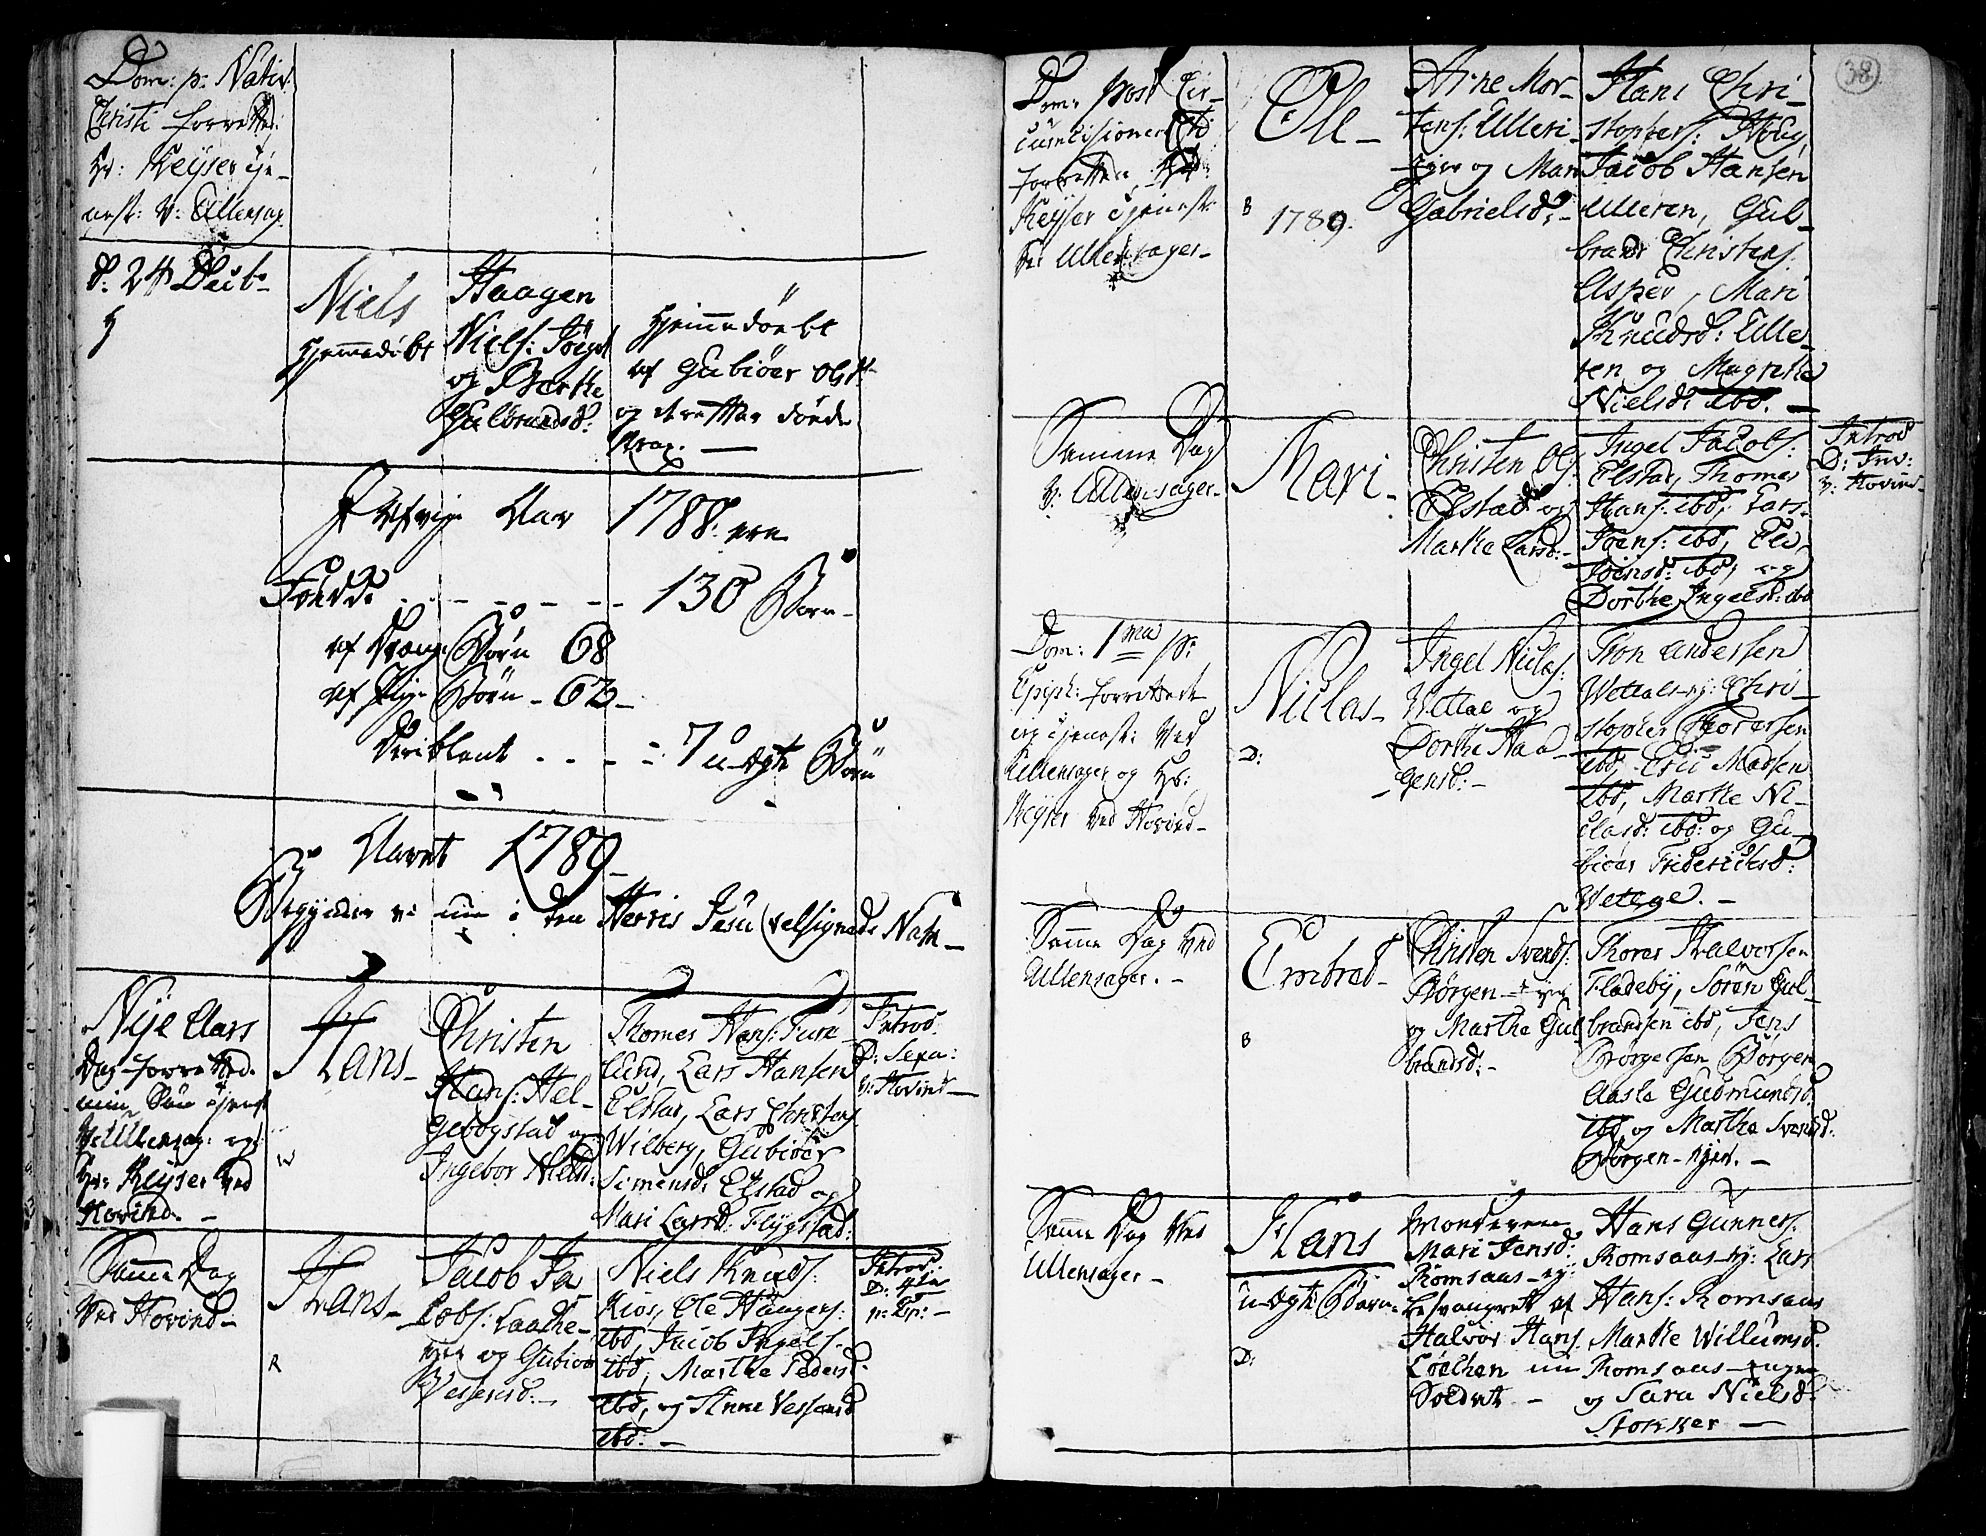 Dom: p: Nativ:
Christi forretted:
Hr: Keyser tje-
nest: v: Ullensag:
d: 24 Decb:
Niels
Hjemmedöbt
Haagen
Niels:
og Berthe
Gulbrandsd:
Hjemmedöbt
af Gubiöer Olsd:
og derefter döde
strax. —
I Afvigte Aar 1788. ere
Födde - - - - - - 130 Börn
af Drenge Börn 68
af Pige Börn - 62 -
Deriblant - - - - 7 u-ægte Börn
Aaret 1789
Begynder vi nu i den Herris Jesu velsignede Nafn —
Nye Aars
Dag forretted.
min Sön tjenest
v: Ullensag: og
Hr: Keyser ved
Hovind. -
Hans -
W
Christen
Hans: Hel-
gebogstad og
Ingebor Nielsd:
Thomes Hans: Fura
lund, Lars Hansen
Elstad, Lars Christens:
Wilberg, Gubiöer
Simensd: Elstad og
Mari Larsd: Flygstad:
Introd:
D: Sexa:
v: Hovind —
Samme Dag
ved Hovind -
Hans -
R
Jacob Ja
cobs: Laache-
og Gubiör
Niels Knuds:
Kios, Ole Haagens:
ibd, Jacob Ingels:
ibd, Marthe Peders:
ibd, og Anne
ibd: -
Introd:
38
Dom: post Cir-
cumcisionem
forretted
Keyser tjenest:
ved Ullensager -
Ole -
B
1789.
Arne Mor-
tens: Ulleri-
ejer og Mari
Gabrielsd: -
Hans Chri-
stophers: Houg,
Jacob Hansen
Ulleren, Gul-
brand Christens:
Asper, Mari
Knudsd: Ulle-
ren og Magrethe
Nielsd: ibd. —
Samme Dag
v: Ullensager -
Mari -
Christen Ols:
Elstad og
Marthe Larsd: -
Ingel Jacobs:
Elstad, Thomes
Hans: ibd, Lars
Joens: ibd, Eli
Joensd: ibd, og
Dorthe Ingelsd: ibd
Introd
v: Hovind -
Dom: 1ma p:
Epiph: forrettede
jeg tjenest: ved
Ullensager og Hr:
Keyser ved Hovind -
Niclas -
D:
Ingel Niclas:
Wettal og
Dorthe Haa
gensd: -
Tron Andersen
Wettal-ej: Chri-
stopher Thorersen
ibd, Eric Madsen
ibd, Marthe Ni-
clasd: ibd: og Gu-
biöer Friderichsd:
Wettege. -
Samme Dag ved
Ullensager. -
Embred -
B
Christen Svends:
Börgen-ejer
og Marthe Gul
brandsd: -
Thorer Halvorsen
Fladeby, Sören Gul-
brandsen ibd, Jens
Börgersen Börgen
Aasle Gudmundsd:
ibd og Marthe Svendsd:
Börgen-ejer. -
Samme Dag ved
Ullensager -
Hans
u-ægte Barn -
D:
Moderen
Mari Jensd:
Romsaas-ej:
besvangret af
Halvor Hans:
Löechen en
Soldat -
Hans Gunners:
Romsaas-ej: Lars
Hans: Romsaas
Marthe Willumsd:
Romsaas-
og Sara Nielsd:
Stocker —